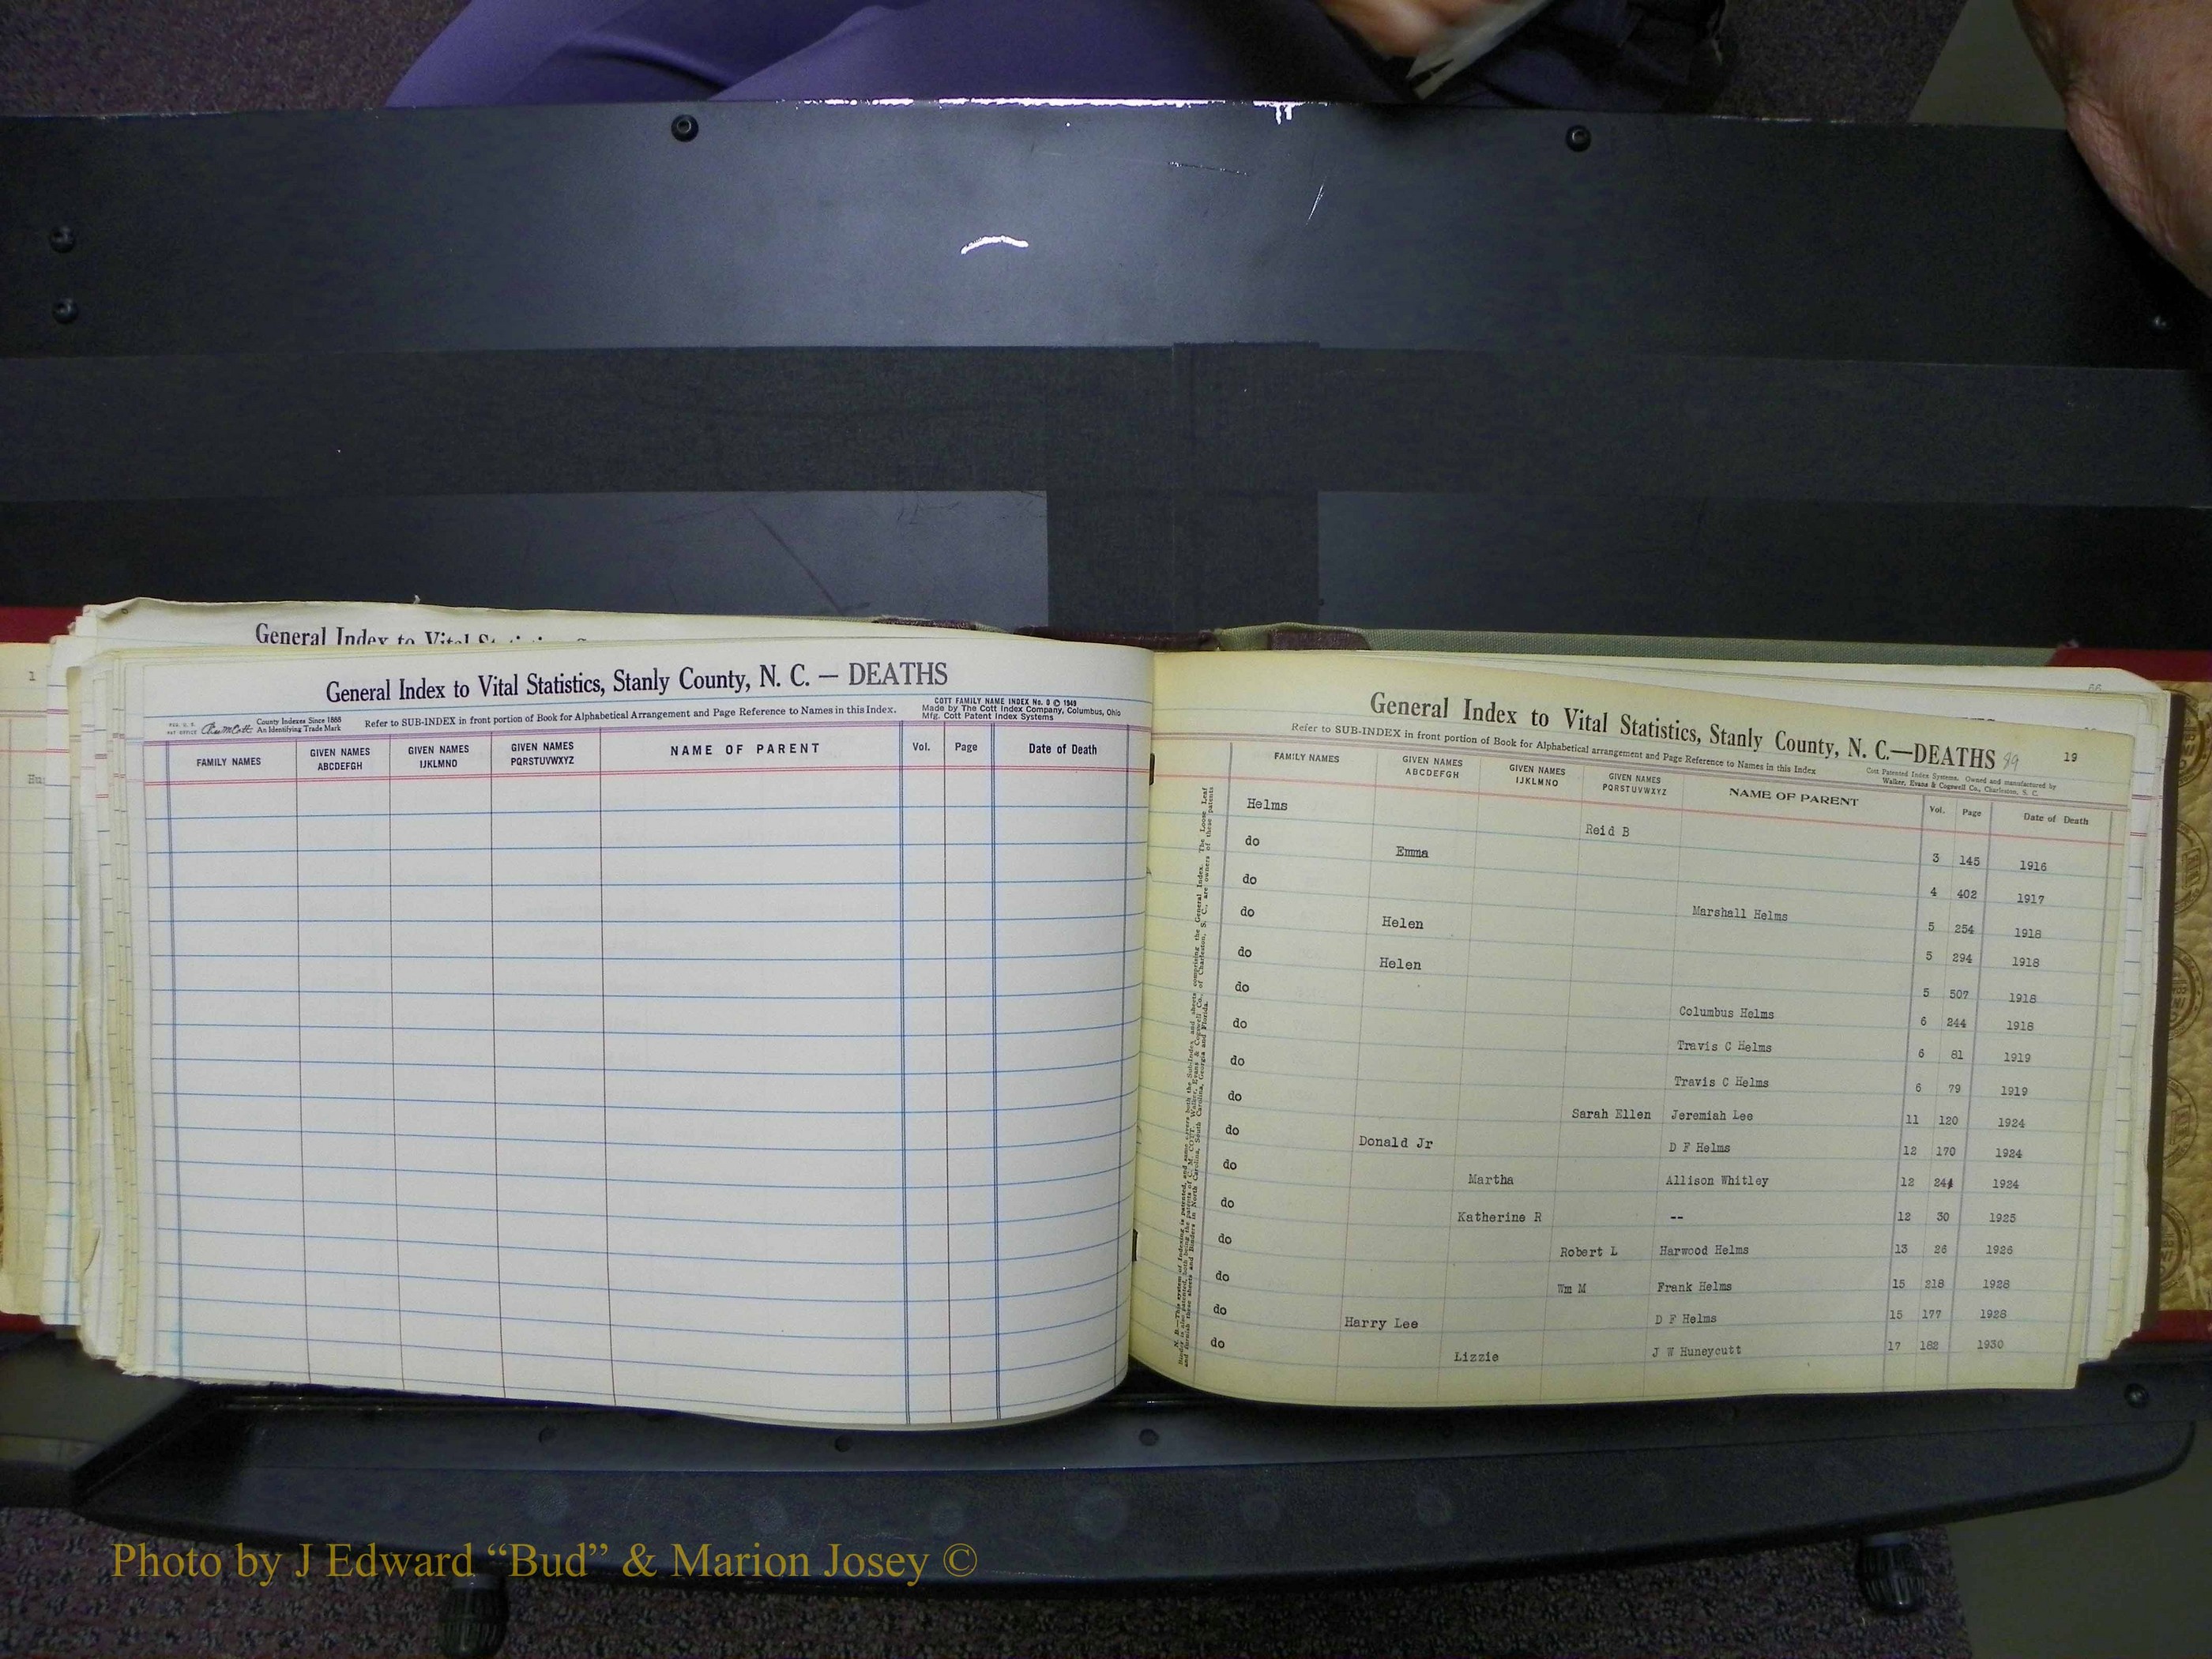 General Index to Vital Statistics
General Index to Vital Statistics, Stanly County, N. C. — DEATHS
REG. U. S. PAT. OFFICE County Indexes Since 1888 An Identifying Trade Mark
Refer to SUB-INDEX in front portion of Book for Alphabetical Arrangement and Page Reference to Names in this Index.
COTT FAMILY NAME INDEX No. 0 © 1949
Made by The Cott Index Company, Columbus, Ohio
Mfg. Cott Patent Index Systems
FAMILY NAMES GIVEN NAMES ABCDEFGH GIVEN NAMES IJKLMNO GIVEN NAMES PQRSTUVWXYZ NAME OF PARENT Vol. Page Date of Death
1
Hu
66
General Index to Vital Statistics, Stanly County, N. C.—DEATHS 99 19
Refer to SUB-INDEX in front portion of Book for Alphabetical arrangement and Page Reference to Names in this Index
Cott Patented Index Systems. Owned and manufactured by
Walker, Evans & Cogswell Co., Charleston, S. C.
FAMILY NAMES GIVEN NAMES ABCDEFGH GIVEN NAMES IJKLMNO GIVEN NAMES PQRSTUVWXYZ NAME OF PARENT Vol. Page Date of Death
Helms Reid B 3 145 1916
do Emma 4 402 1917
do Marshall Helms 5 254 1918
do Helen 5 294 1918
do Helen 5 507 1918
do Columbus Helms 6 244 1918
do Travis C Helms 6 81 1919
do Travis C Helms 6 79 1919
do Sarah Ellen Jeremiah Lee 11 120 1924
do Donald Jr D F Helms 12 170 1924
do Martha Allison Whitley 12 244 1924
do Katherine R -- 12 30 1925
do Robert L Harwood Helms 13 26 1926
do Wm M Frank Helms 15 218 1928
do Harry Lee D F Helms 15 177 1928
do Lizzie J W Huneycutt 17 182 1930
Photo by J Edward “Bud” & Marion Josey ©